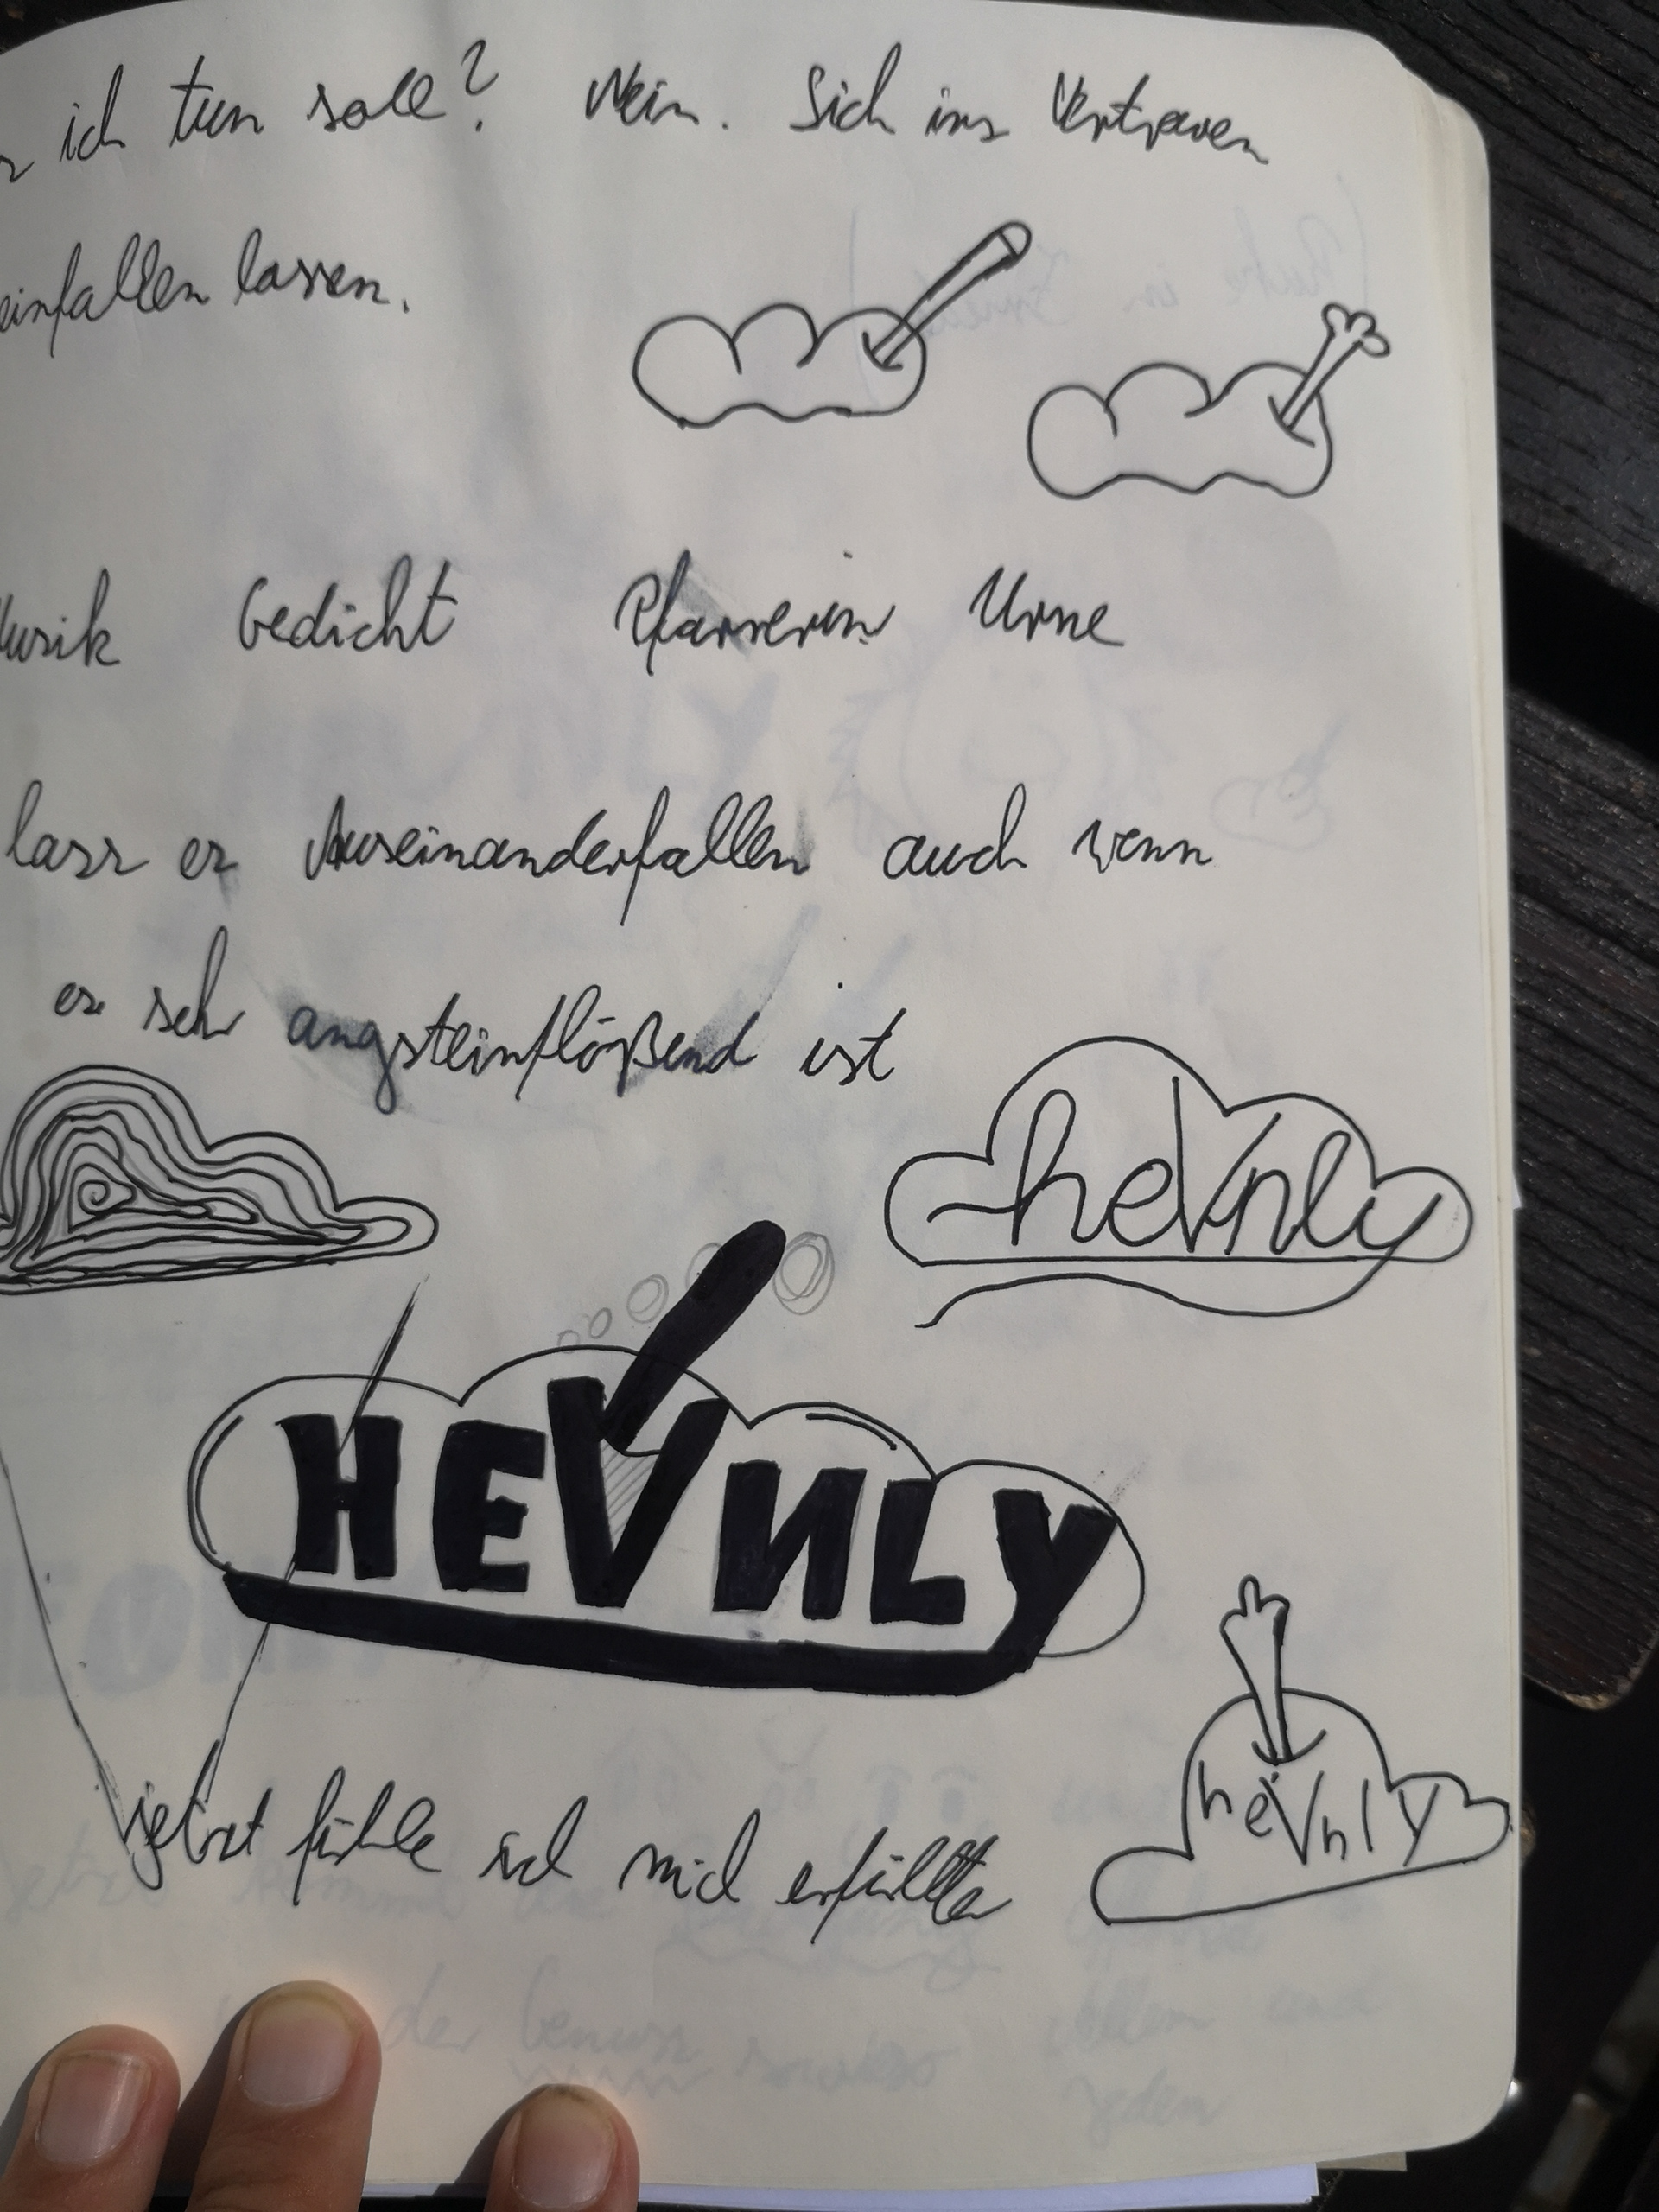 ich tun soll? Nein. Sich ins Vertrauen
einfallen lassen.
Musik Gedicht Pfarrerin Urne
lass es Auseinanderfallen auch wenn
es sehr angsteinflößend ist
hevnly
HEVNLY
hevnly
jetzt fühle ich mich erfüllter